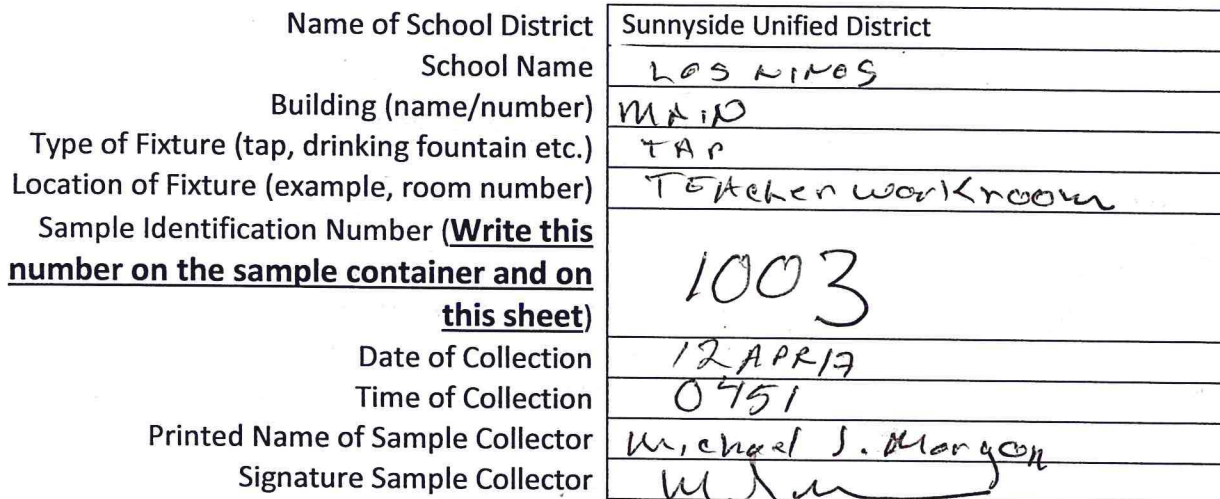 Name of School District Sunnyside Unified District
School Name LOS NINOS
Building (name/number) MAIN
Type of Fixture (tap, drinking fountain etc.) TAP
Location of Fixture (example, room number) TEAcher workroom
Sample Identification Number (Write this
number on the sample container and on
this sheet) 1003
Date of Collection 12APR17
Time of Collection 0451
Printed Name of Sample Collector Michael J.
Signature Sample Collector